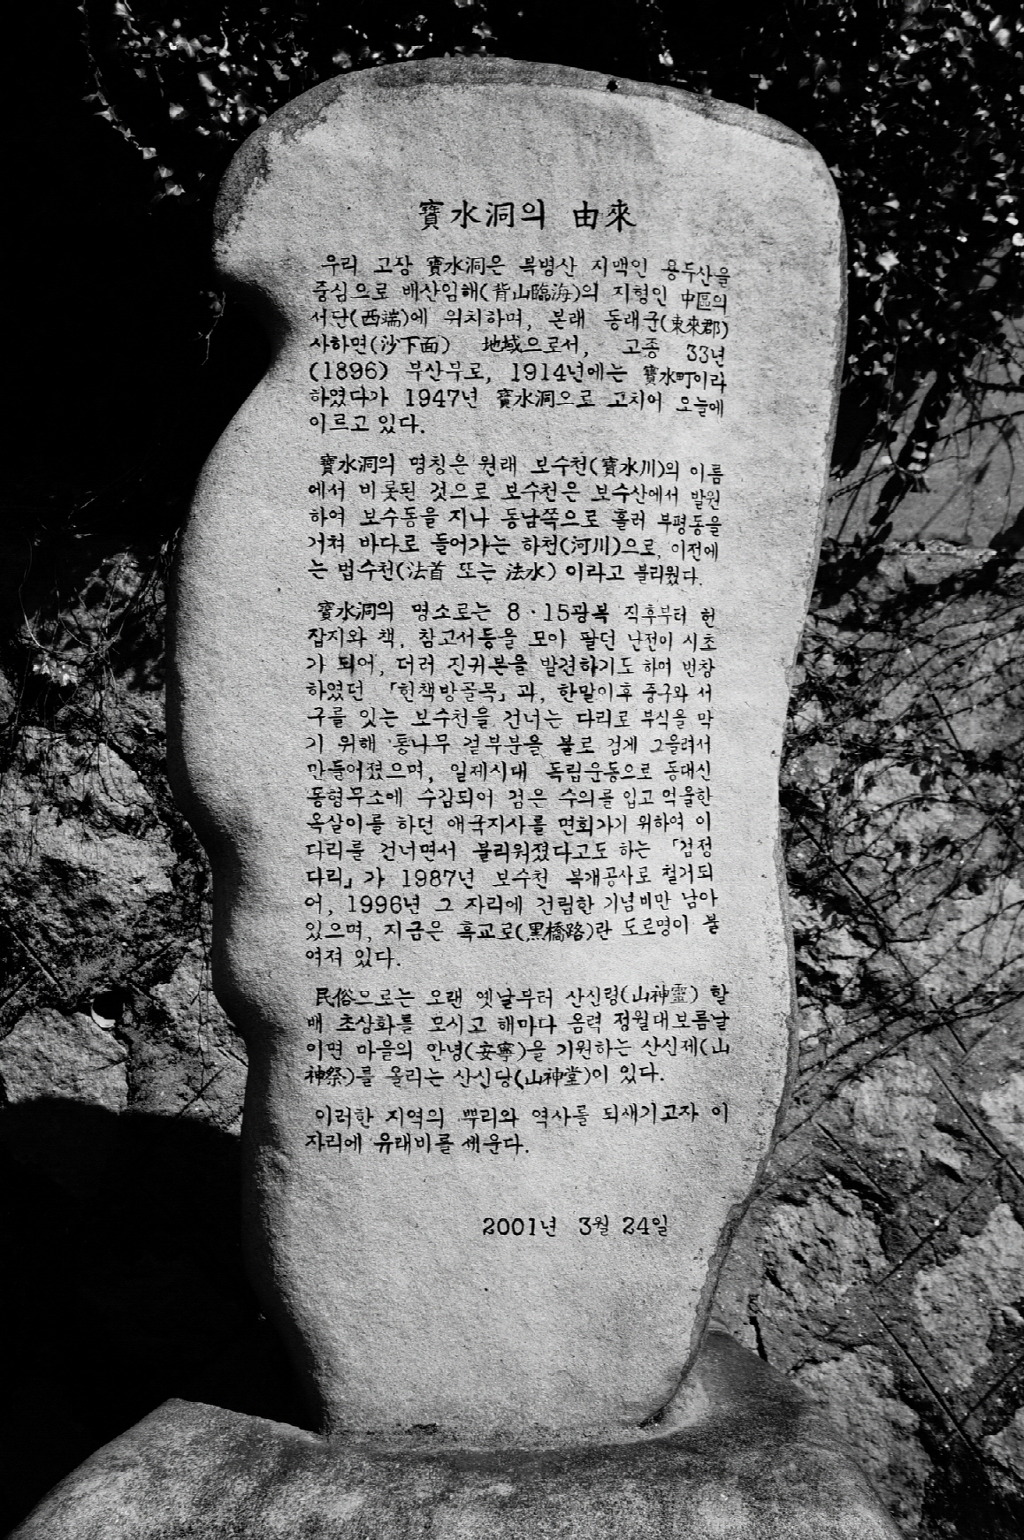 寶水洞의 由來
우리 고장 寶水洞은 복병산 지맥인 용두산을
중심으로 배산임해(背山臨海)의 지형인 中區의
서단(西端)에 위치하며, 본래 동래군(東來郡)
사하면(沙下面) 地域으로서, 고종 33년
(1896) 부산부로, 1914년에는 寶水町이라
하였다가 1947년 寶水洞으로 고치어 오늘에
이르고 있다.
寶水洞의 명칭은 원래 보수천(寶水川)의 이름
에서 비롯된 것으로 보수천은 보수산에서 발원
하여 보수동을 지나 동남쪽으로 흘러 부평동을
거쳐 바다로 들어가는 하천(河川)으로, 이전에
는 법수천(法首 또는 法水)이라고 불리웠다.
寶水洞의 명소로는 8·15광복 직후부터 헌
잡지와 책, 참고서등을 모아 팔던 난전이 시초
가 되어, 더러 진귀본을 발견하기도 하며 번창
하였던 「헌책방골목」과, 한말이후 중구와 서
구를 잇는 보수천을 건너는 다리로 부식을 막
기 위해 통나무 겉부분을 불로 검게 그을려서
만들어졌으며, 일제시대 독립운동으로 동대신
동형무소에 수감되어 검은 수의를 입고 억울한
옥살이를 하던 애국지사를 면회가기 위하여 이
다리를 건너면서 불리워졌다고도 하는 「검정
다리」가 1987년 보수천 복개공사로 철거되
어, 1996년 그 자리에 건립한 기념비만 남아
있으며, 지금은 흑교로(黑橋路)란 도로명이 불
여져 있다.
民俗으로는 오랜 옛날부터 산신령(山神靈) 할
배 초상화를 모시고 해마다 음력 정월대보름날
이면 마을의 안녕(安寧)을 기원하는 산신제(山
神祭)를 올리는 산신당(山神堂)이 있다.
이러한 지역의 뿌리와 역사를 되새기고자 이
자리에 유래비를 세운다.
2001년 3월 24일